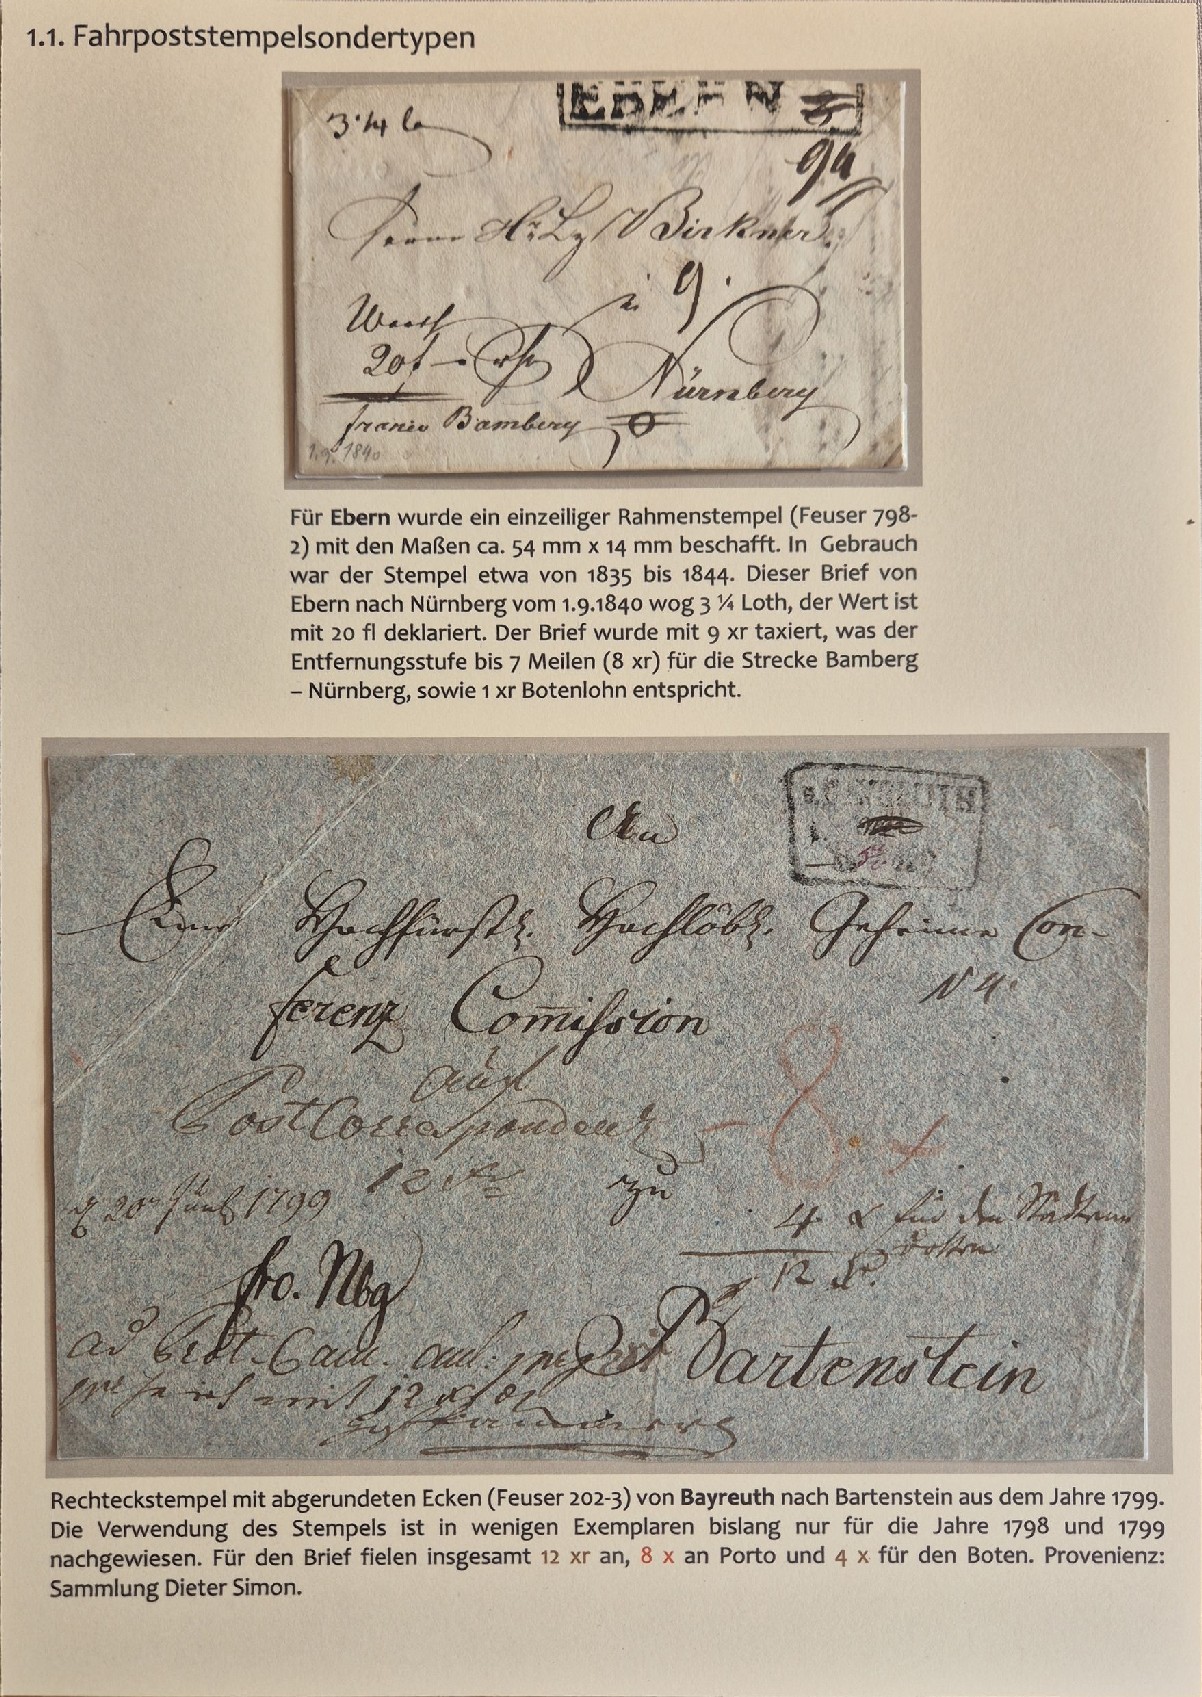 1.1. Fahrpoststempelsondertypen
EBERN
3 1/4 lo
94
Herrn Birkner
9.
Werth
20 f rh
Nürnberg
franco Bamberg
1.9.1840
Für Ebern wurde ein einzeiliger Rahmenstempel (Feuser 798-
2) mit den Maßen ca. 54 mm x 14 mm beschafft. In Gebrauch
war der Stempel etwa von 1835 bis 1844. Dieser Brief von
Ebern nach Nürnberg vom 1.9.1840 wog 3 ¼ Loth, der Wert ist
mit 20 fl deklariert. Der Brief wurde mit 9 xr taxiert, was der
Entfernungsstufe bis 7 Meilen (8 xr) für die Strecke Bamberg
– Nürnberg, sowie 1 xr Botenlohn entspricht.
An
Eine Hochfürstl. Hochlöbl. Geheime Con-
N 4.
ferenz Com̄ission
auf
Post Correspondenz
8
12 zu
20 1799
4 x für den
12
fro. Nbg
Bartenstein
mit 12
Rechteckstempel mit abgerundeten Ecken (Feuser 202-3) von Bayreuth nach Bartenstein aus dem Jahre 1799.
Die Verwendung des Stempels ist in wenigen Exemplaren bislang nur für die Jahre 1798 und 1799
nachgewiesen. Für den Brief fielen insgesamt 12 xr an, 8 x an Porto und 4 x für den Boten. Provenienz:
Sammlung Dieter Simon.